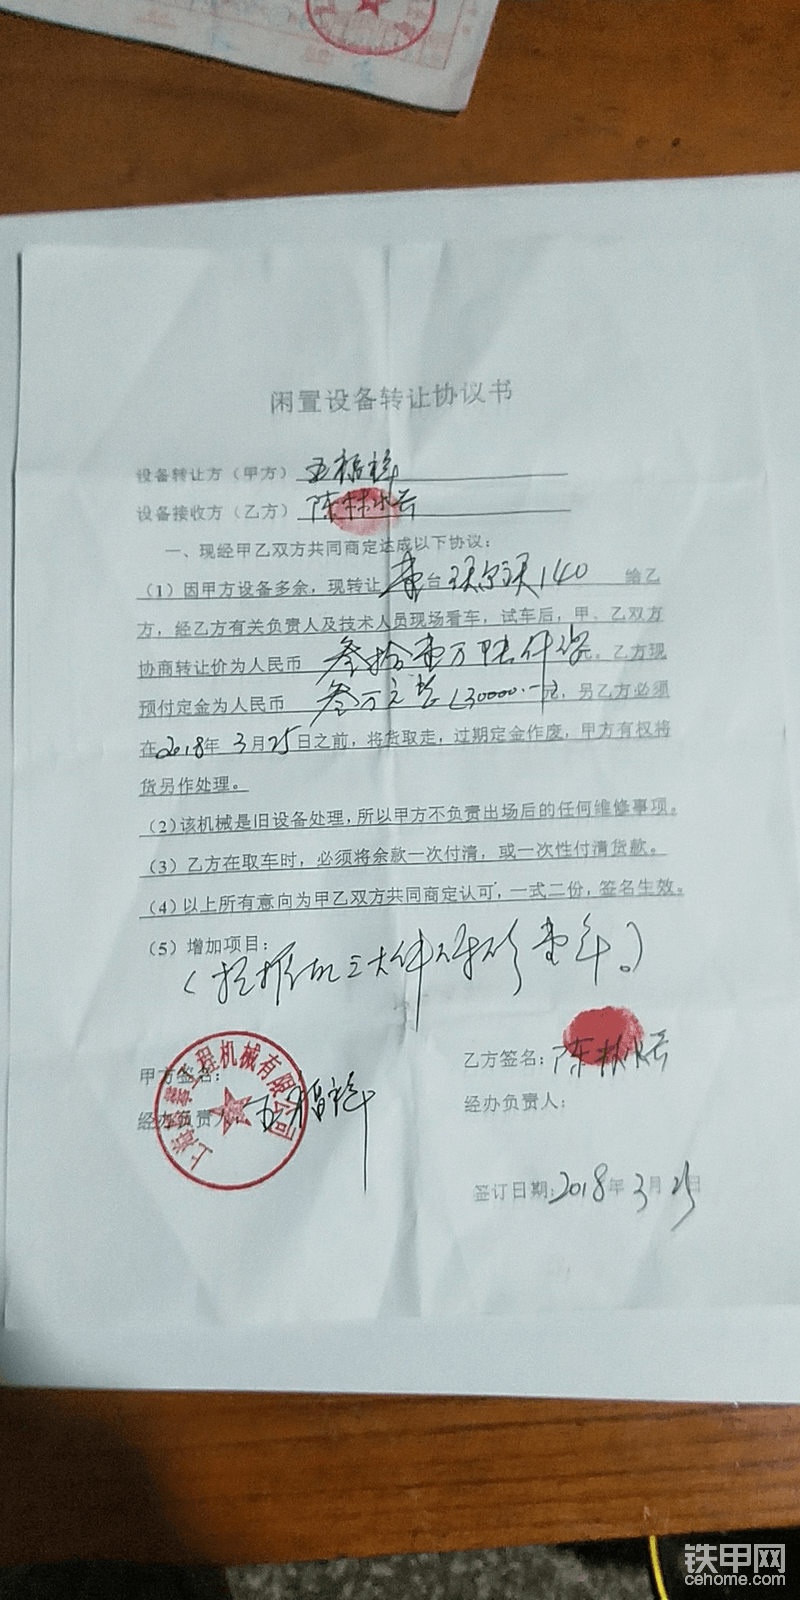 闲置设备转让协议书
设备转让方（甲方）
设备接收方（乙方）陈林云
一、现经甲乙双方共同商定达成以下协议：
（1）因甲方设备多余，现转让 壹 台 沃尔沃140 给乙
方，经乙方有关负责人及技术人员现场看车，试车后，甲、乙双方
协商转让价为人民币 叁拾壹万 仟 元。乙方现
预付定金为人民币 叁万元整 (30000.一元，另乙方必须
在2018年 3月25日之前，将货取走，过期定金作废，甲方有权将
货另作处理。
（2）该机械是旧设备处理，所以甲方不负责出场后的任何维修事项。
（3）乙方在取车时，必须将余款一次付清，或一次性付清货款。
（4）以上所有意向为甲乙双方共同商定认可，一式二份，签名生效。
（5）增加项目：
（挖掘机三大件保修壹年。）
甲方签名：
乙方签名：陈林云
经办负责人：
经办负责人：
上海 工程机械有限公司
签订日期：2018年3月25日
铁甲网
cehome.com